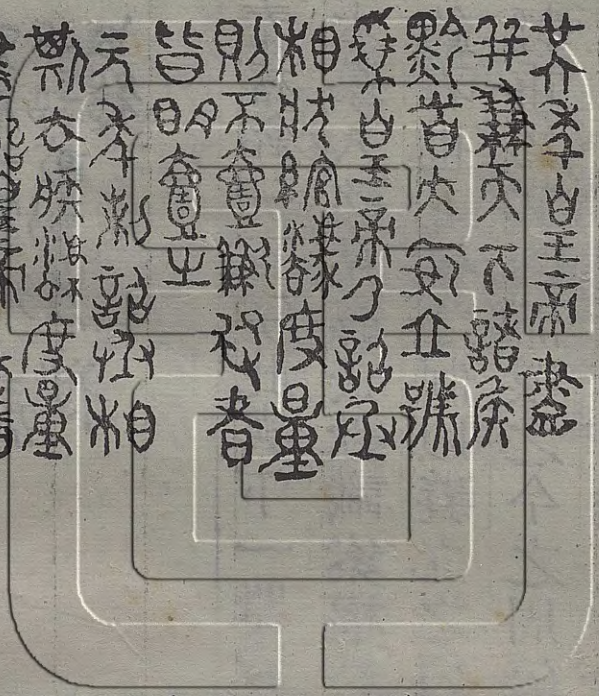 廿六年皇帝盡
并兼天下諸侯
黔首大安立號
爲皇帝乃詔丞
相狀綰灋度量
則不壹歉疑者
皆明壹之
元年制詔丞相
斯去疾灋度量